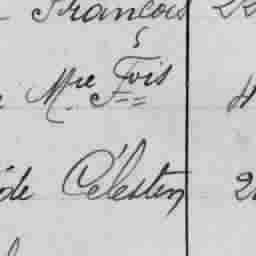 François 22
Mre Fois 4
de Célestin 2